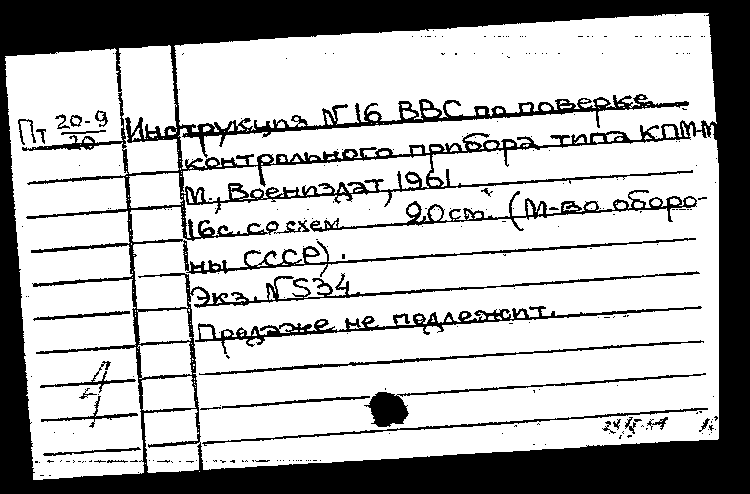 Пт 20-9/20
Инструкция №16 ВВС по поверке
контрольного прибора типа КПМ-М
М., Воениздат, 1961.
16с. со схем. 20см. (М-во оборо-
ны СССР).
Экз. № 534.
Продаже не подлежит.
4